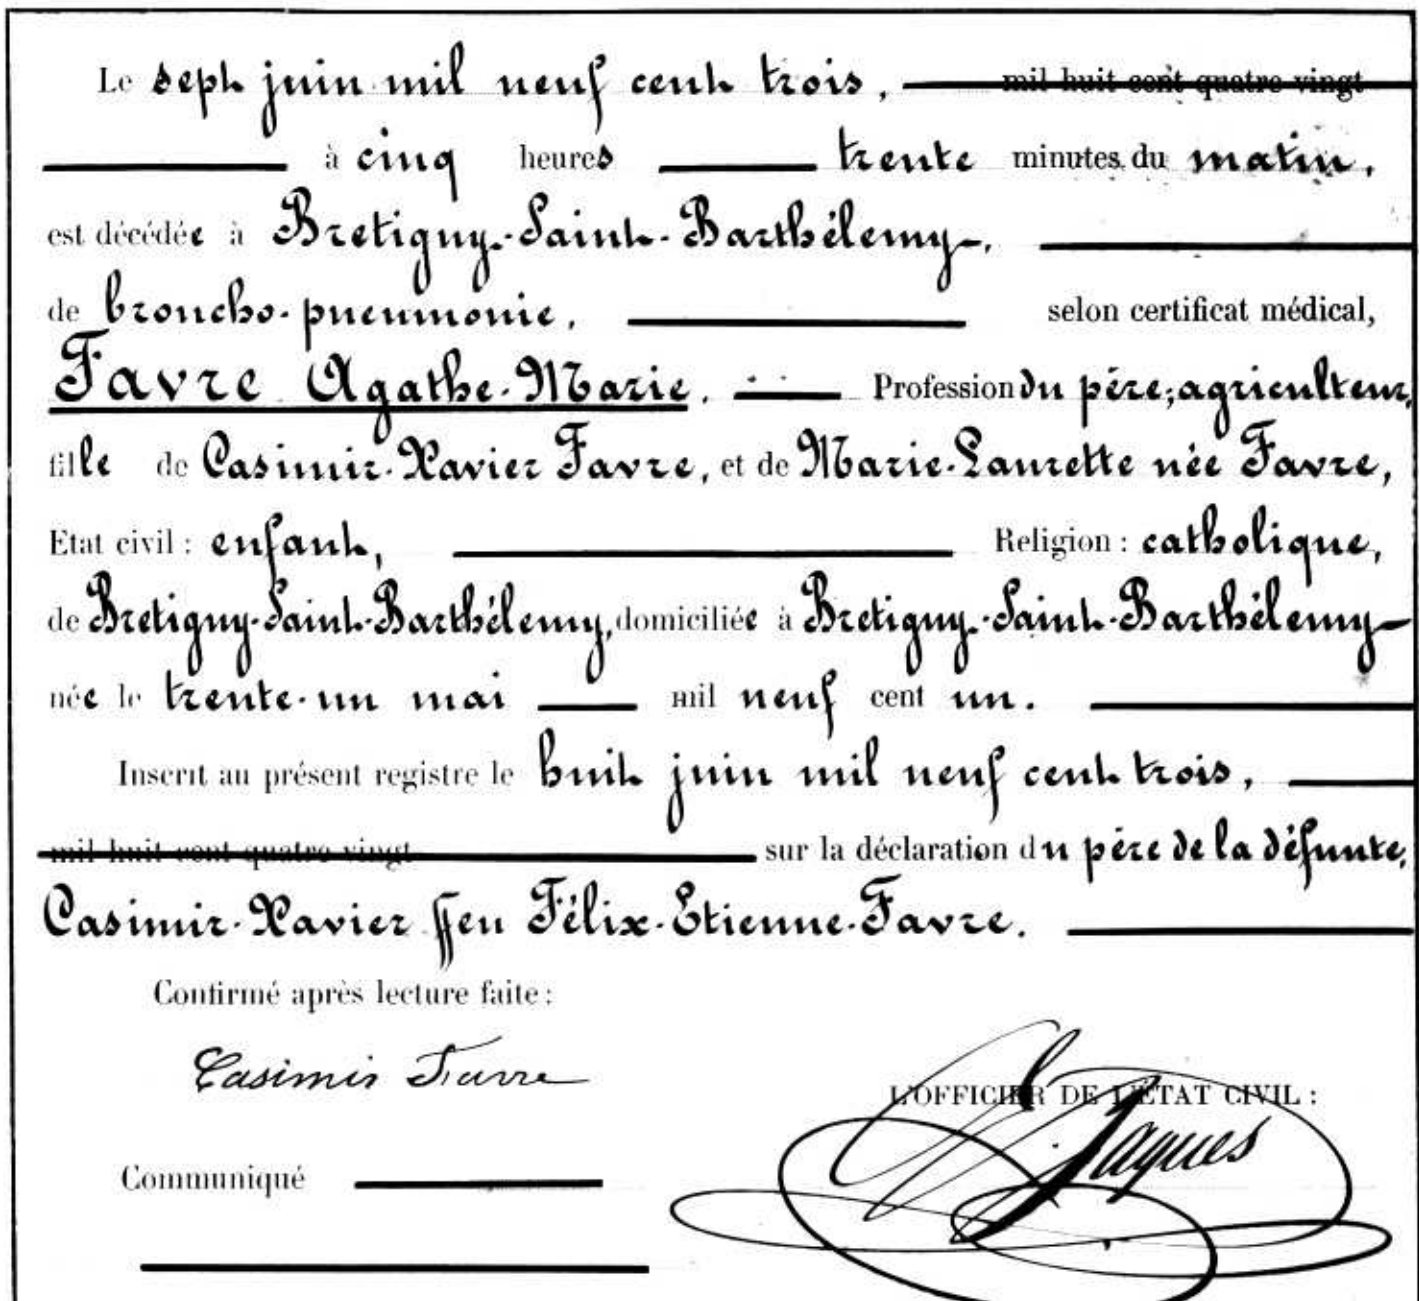 Le sept juin mil neuf cent trois, mil huit cent quatre vingt
à cinq heures trente minutes du matin,
est décédée à Bretigny-Saint-Barthélemy,
de broncho-pneumonie, selon certificat médical,
Favre Agathe-Marie. Profession du père; agriculteur,
fille de Casimir-Xavier Favre, et de Marie-Laurette née Favre,
Etat civil : enfant, Religion : catholique,
de Bretigny-Saint-Barthélemy, domiciliée à Bretigny-Saint-Barthélemy
née le trente-un mai mil neuf cent un.
Inscrit au présent registre le huit juin mil neuf cent trois,
mil huit cent quatre vingt sur la déclaration du père de la défunte,
Casimir-Xavier ffeu Félix-Etienne-Favre.
Confirmé après lecture faite :
Casimir Favre
L'OFFICIER DE L'ÉTAT CIVIL :
Jaques
Communiqué